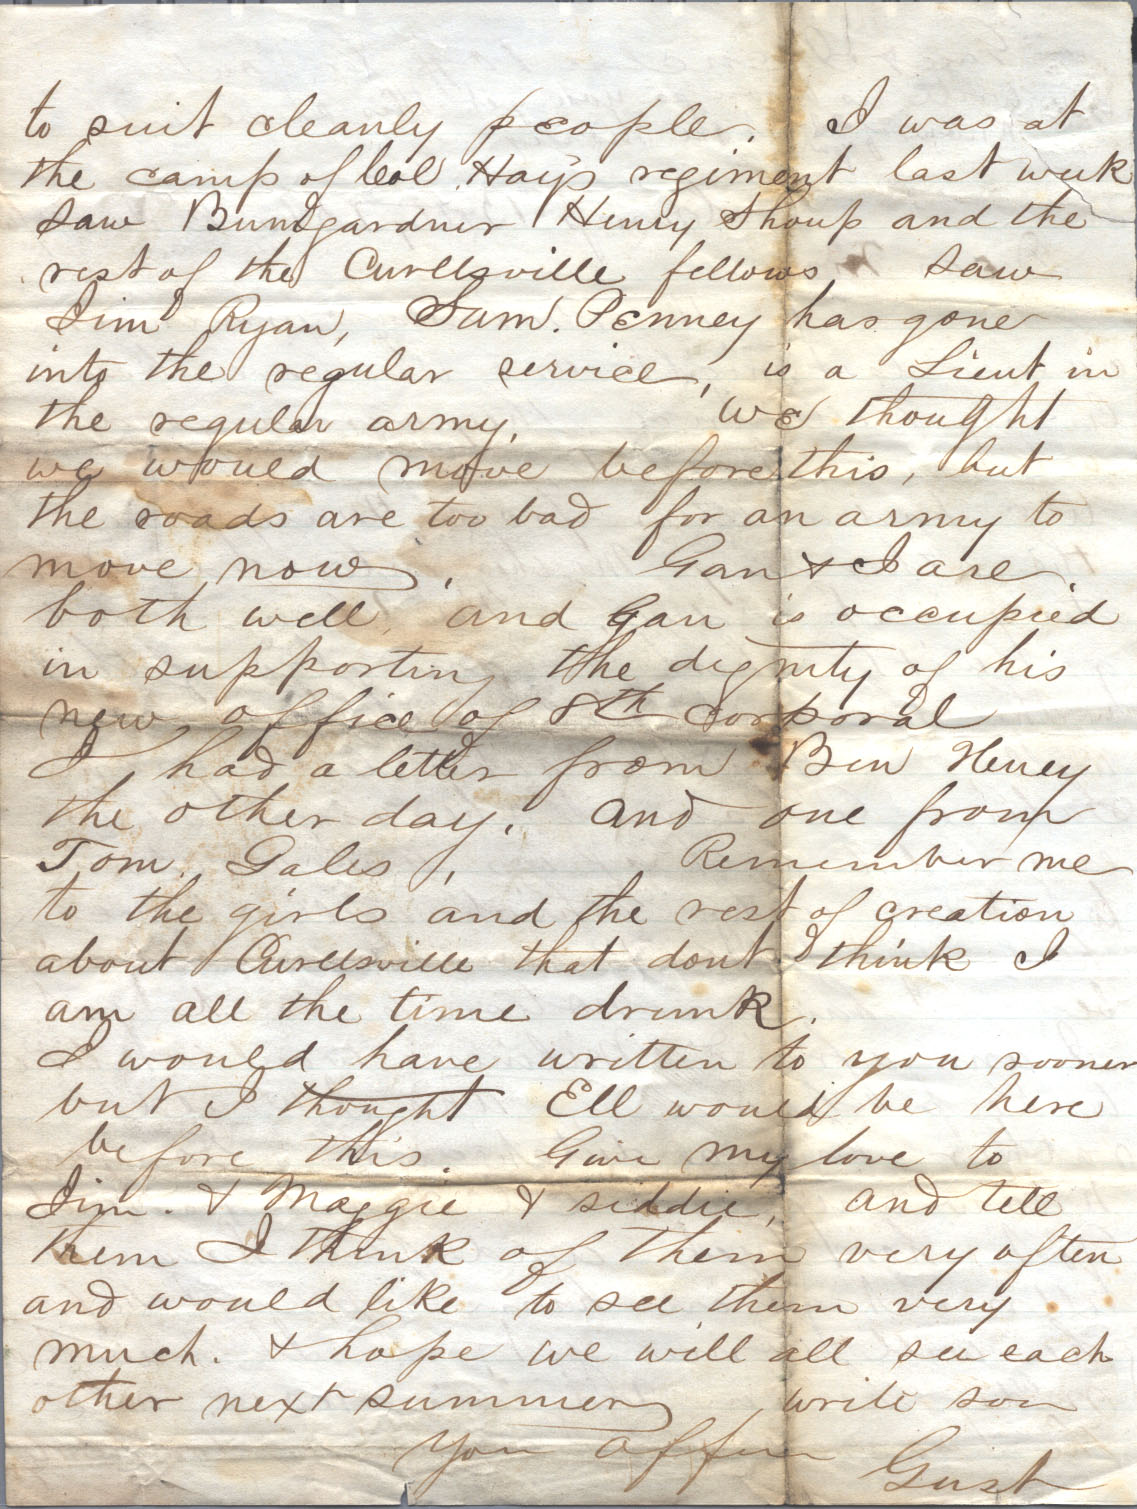 to suit cleanly people. I was at
the camp of Col. Hays regiment last week
saw Bumgardner Henry Shoup and the
rest of the Curllsville fellows saw
Jim Ryan, Sam. Penney has gone
into the regular service, is a Lieut in
the regular army. We thought
we would move before this, but
the roads are too bad for an army to
move now. Gan & I are
both well, and Gan is occupied
in supporting the dignity of his
new office of 8th corporal
I had a letter from Ben Henry
the other day. and one from
Tom. Gales. Remember me
to the girls and the rest of creation
about Curllsville that dont think I
am all the time drunk.
I would have written to you sooner
but I thought Ell would be here
before this. Give my love to
Jim. & Maggie & siddie, and tell
them I think of them very often
and would like to see them very
much. & hope we will all see each
other next summer write soon
Your
Gust